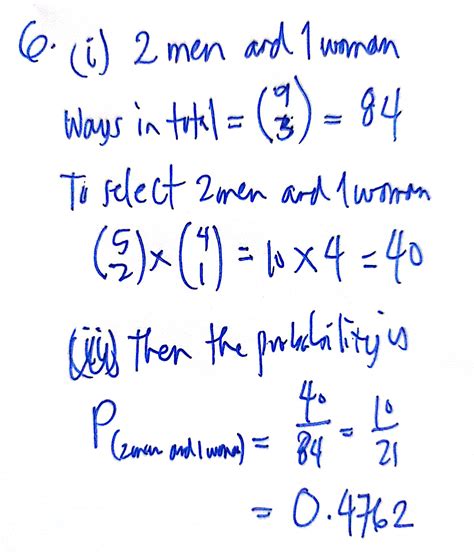 6. (i) 2 men and 1 woman
Ways in total = (9 3) = 84
To select 2 men and 1 woman
(5 2) × (4 1) = 10 × 4 = 40
then the probability is
P(2 men and 1 woman) = 40/84 = 10/21
= 0.4762